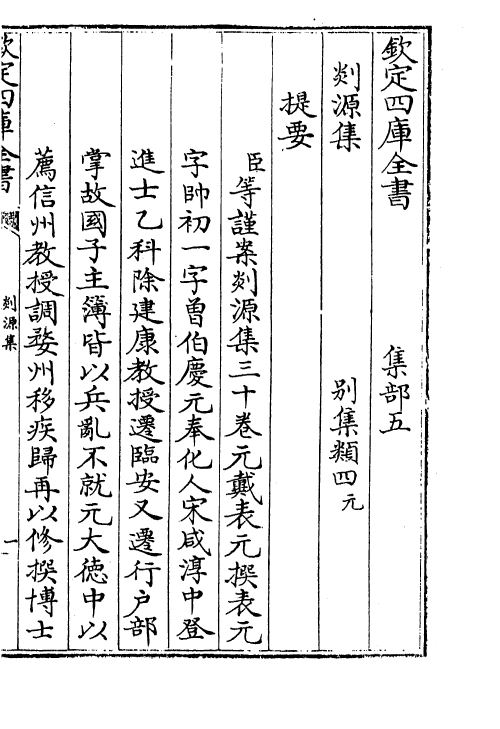 欽定四庫全書　集部五
剡源集　別集類四元
提要
臣等謹案剡源集三十卷元戴表元撰表元
字帥初一字曾伯慶元奉化人宋咸淳中登
進士乙科除建康教授遷臨安又遷行户部
掌故國子主簿皆以兵亂不就元大徳中以
薦信州教授調婺州移疾歸再以修撰博士
欽定四庫全書　剡源集　一